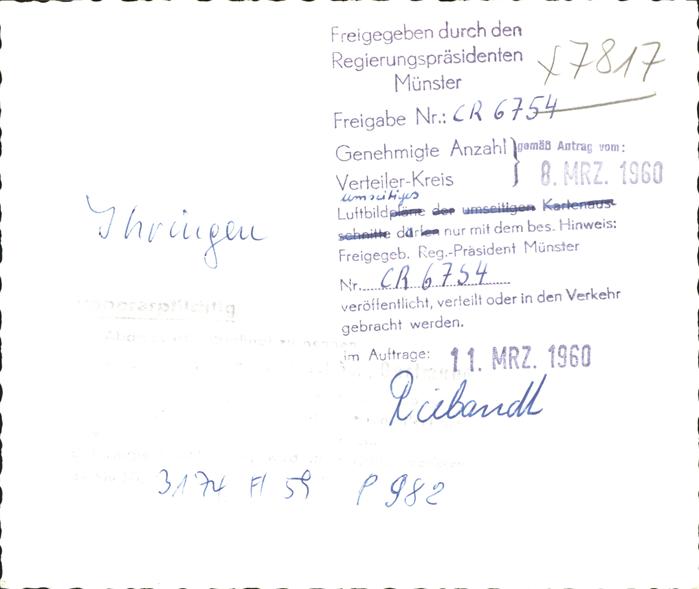 Freigegeben durch den
Regierungspräsidenten
Münster
x7817
Freigabe Nr.: CR 6754
Genehmigte Anzahl } gemäß Antrag vom:
Verteiler-Kreis 8. MRZ. 1960
umseitiges
Luftbildpläne der umseitigen Kartenaus-
schnitte dürfen nur mit dem bes. Hinweis:
Freigegeb. Reg.-Präsident Münster
Nr. CR 6754
veröffentlicht, verteilt oder in den Verkehr
gebracht werden.
im Auftrage: 11. MRZ. 1960
Ihringen
3174 Fl 59 P 982